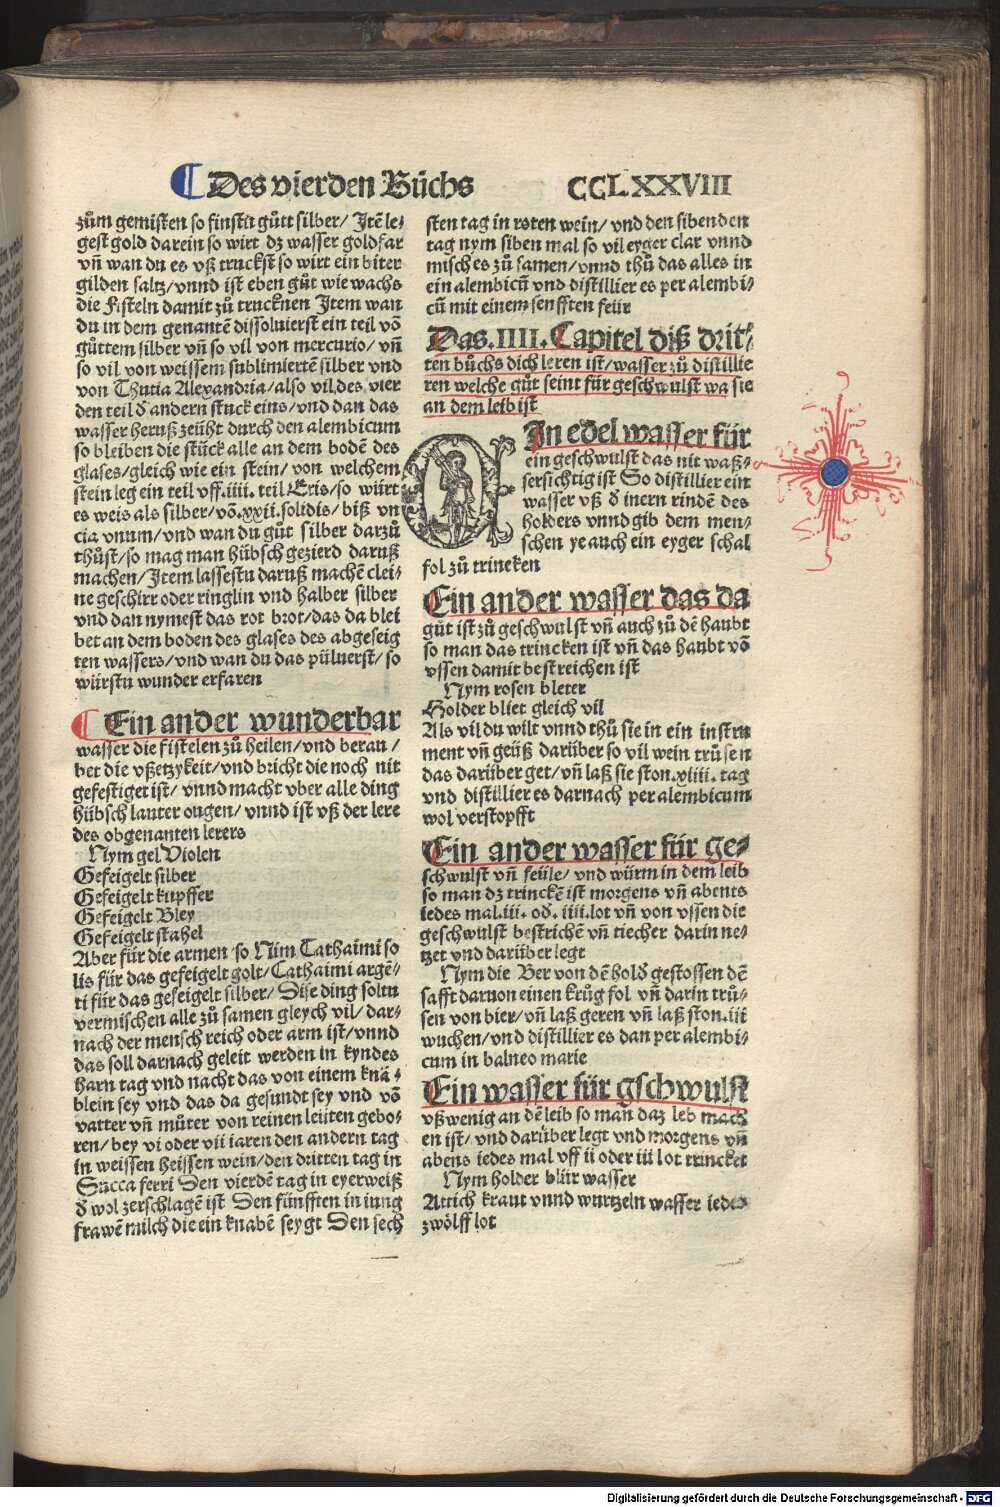 Des vierden Bůchs CCLXXVIII
zům gemisten so finstu gůtt silber/ Itē le⸗
gest gold darein so wirt dz wasser goldfar
vñ wan du es vß truckst so wirt ein biter
gilden saltz/vnnd ist eben gůt wie wachs
die Fisteln damit zů trucknen Item wan
du in dem genantē dissoluierst ein teil vō
gůttem silber vñ so vil von mercurio/ vñ
so vil von weissem sublimiertē silber vnd
von Thutia Alexandria/also vil des vier
den teil đ andern stuck eins/vnd dan das
wasser heruß zeüht durch den alembicum
so bleiben die stück alle an dem bodē des
glases/gleich wie ein stein/ von welchem
stein leg ein teil vff.iiii. teil Eris/so würt
es weis als silber/vō.xxii.solidis/ biß vn
cia vnum/vnd wan du gůt silber darzů
thůst/so mag man hübsch gezierd daruß
machen/Item lassestu daruß machē clei⸗
ne geschirr oder ringlin vnd halber silber
vnd dan nymest das rot brot/das da blei
bet an dem boden des glases des abgeseig
ten wassers/vnd wan du das püluerst/ so
würstu wunder erfaren
Ein ander wunderbar
wasser die fistelen zů heilen/vnd berau/
bet die vßetzykeit/vnd bricht die noch nit
gefestiget ist/ vnnd macht vber alle ding
hübsch lauter ougen/ vnnd ist vß der lere
des obgenanten lerers
Nym gel Violen
Gefeigelt silber
Gefeigelt kupffer
Gefeigelt Bley
Gefeigelt stahel
Aber für die armen so Nim Cathaimi so
lis für das gefeigelt golt/Cathaimi argē⸗
ti für das gefeigelt silber/ Dise ding soltu
vermischen alle zů samen gleych vil/ dar⸗
nach der mensch reich oder arm ist/vnnd
das soll darnach geleit werden in kyndes
harn tag vnd nacht das von einem knä⸗
blein sey vnd das da gesundt sey vnd vō
vatter vñ můter von reinen leüten gebo⸗
ren/ bey vi oder vii iaren den andern tag
in weissen heissen wein/den dritten tag in
Succa ferri Den vierdē tag in eyerweiß
đ wol zerschlagē ist Den fünfften in iung
frawē milch die ein knabē seygt Den sech
sten tag in roten wein/ vnd den sibenden
tag nym siben mal so vil eyger clar vnnd
misch es zů samen/vnnd thů das alles in
ein alembicū vnd distillier es per alembi⸗
cū mit einem senfften feür
Das.IIII.Capitel diß drit⸗
ten bůchs dich leren ist/wasser zů distillie
ren welche gůt seint für geschwulst wa sie
an dem leib ist
In edel wasser für
ein geschwulst das nit waß⸗
sersichtig ist So distillier ein
wasser vß đ inern rindē des
holders vnnd gib dem men⸗
schen ye auch ein eyger schal
fol zů trincken
Ein ander wasser das da
gůt ist zů geschwulst vñ auch zů dē haubt
so man das trincken ist vñ das haubt vō
vssen damit bestreichen ist
Nym rosen bleter
Holder bliet gleich vil
Als vil du wilt vnnd thů sie in ein instru
ment vñ geüß darüber so vil wein trůsen
das darüber get/vñ laß sie ston.xiiii. tag
vnd distillier es darnach per alembicum
wol verstopfft
Ein ander wasser für ge⸗
schwulst vñ feüle/ vnd würm in dem leib
so man dz trinckē ist morgens vñ abents
iedes mal.iii. od. iiii.lot vñ von vssen die
geschwulst bestrichē vñ tiecher darin ne⸗
tzet vnd darüber legt
Nym die Ber von dē holđ gestossen dē
safft daruon einen krůg fol vñ darin trů⸗
sen von bier/vñ laß geren vñ laß ston.iii
wuchen/vnd distillier es dan per alembi⸗
cum in balneo marie
Ein wasser für gschwulst
vßwenig an dē leib so man daz leb mach
en ist/ vnd darüber legt vnd morgens vñ
abens iedes mal vff ii oder iii lot trincket
Nym holder blüt wasser
Attich kraut vnnd wurtzeln wasser iedes
zwölff lot
Digitalisierung gefördert durch die Deutsche Forschungsgemeinschaft - DFG